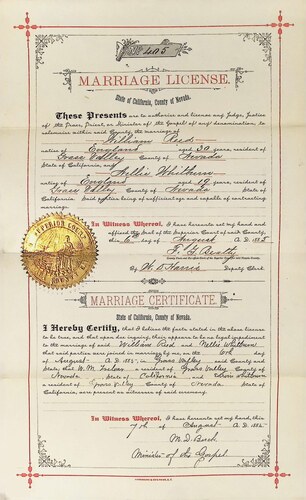 No. 405
MARRIAGE LICENSE.
State of California, County of Nevada.
These Presents are to authorize and license any Judge, Justice
of the Peace, Priest, or Minister of the Gospel of any denomination, to
solemnize within said County, the marriage of
William Reed
native of England aged 30 years, resident of
Grass Valley County of Nevada
State of California, and Nellie Whitburn
native of England aged 19 years, resident of
Grass Valley County of Nevada State of
California. Said parties being of sufficient age and capable of contracting
marriage.
In Witness Whereof, I have hereunto set my hand and
affixed the Seal of the Superior Court of said County,
this 6th day of August A. D. 1885
By Deputy Clerk
SUPERIOR COURT
MARRIAGE CERTIFICATE.
State of California, County of Nevada.
I Hereby Certify, that I believe the facts stated in the above license
to be true, and that upon due inquiry, there appears to be no legal impediment
to the marriage of said William Reed and Nellie Whitburn
that said parties were joined in marriage by me, on the 6th day
of August A. D. 1885 in Grass Valley said County and
State, that a resident of Grass Valley County of
Nevada State of California and Whitburn
a resident of Grass Valley County of Nevada State of
California, were present as witnesses of said ceremony.
In Witness Whereof, I have hereunto set my hand, this
7th of August A. D. 1885
M. D. Buck
Minister of the Gospel